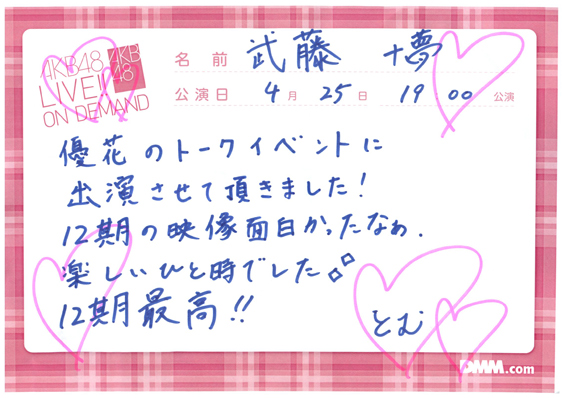 AKB48
LIVE!!
ON DEMAND
AKB
48
名前 武藤 十夢
公演日 4月 25日 19 00 公演
優花のトークイベントに
出演させて頂きました!
12期の映像面白かったなぁ.
楽しいひと時でした
12期最高!!
とむ
DMM.com